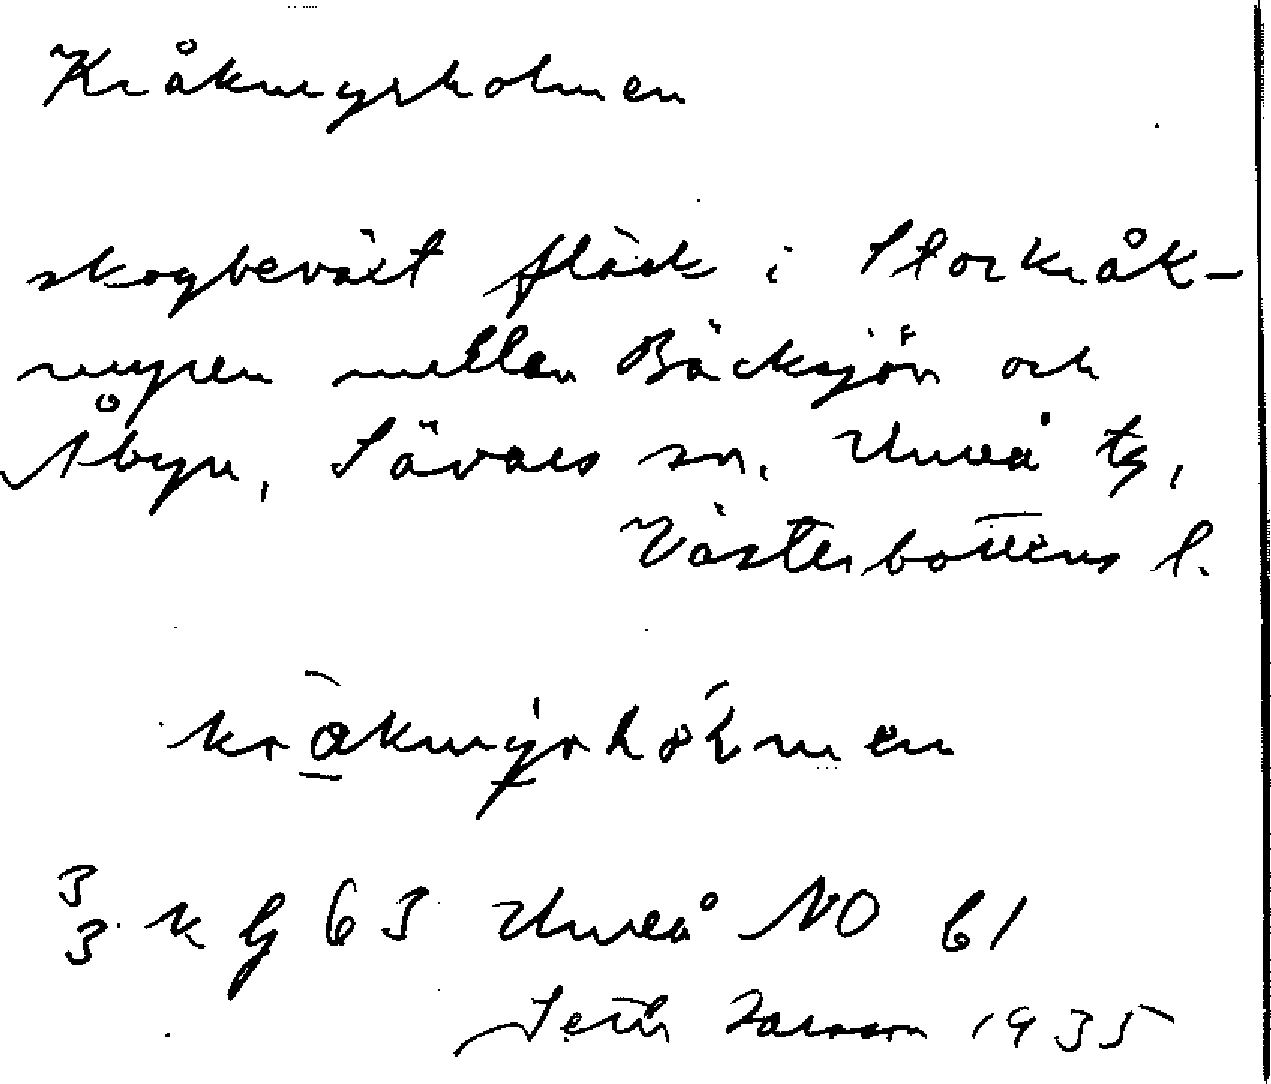 Kråkmyrholmen
skogbeväxt fläck i Storkråk-
myren mellan Bäcksjön och
Åbyn, Sävars sn. Umeå tg,
Västerbottens l.
kråkmyrhólmen
3
3 k g 63 Umeå NO 61
Seth Larsson 1935